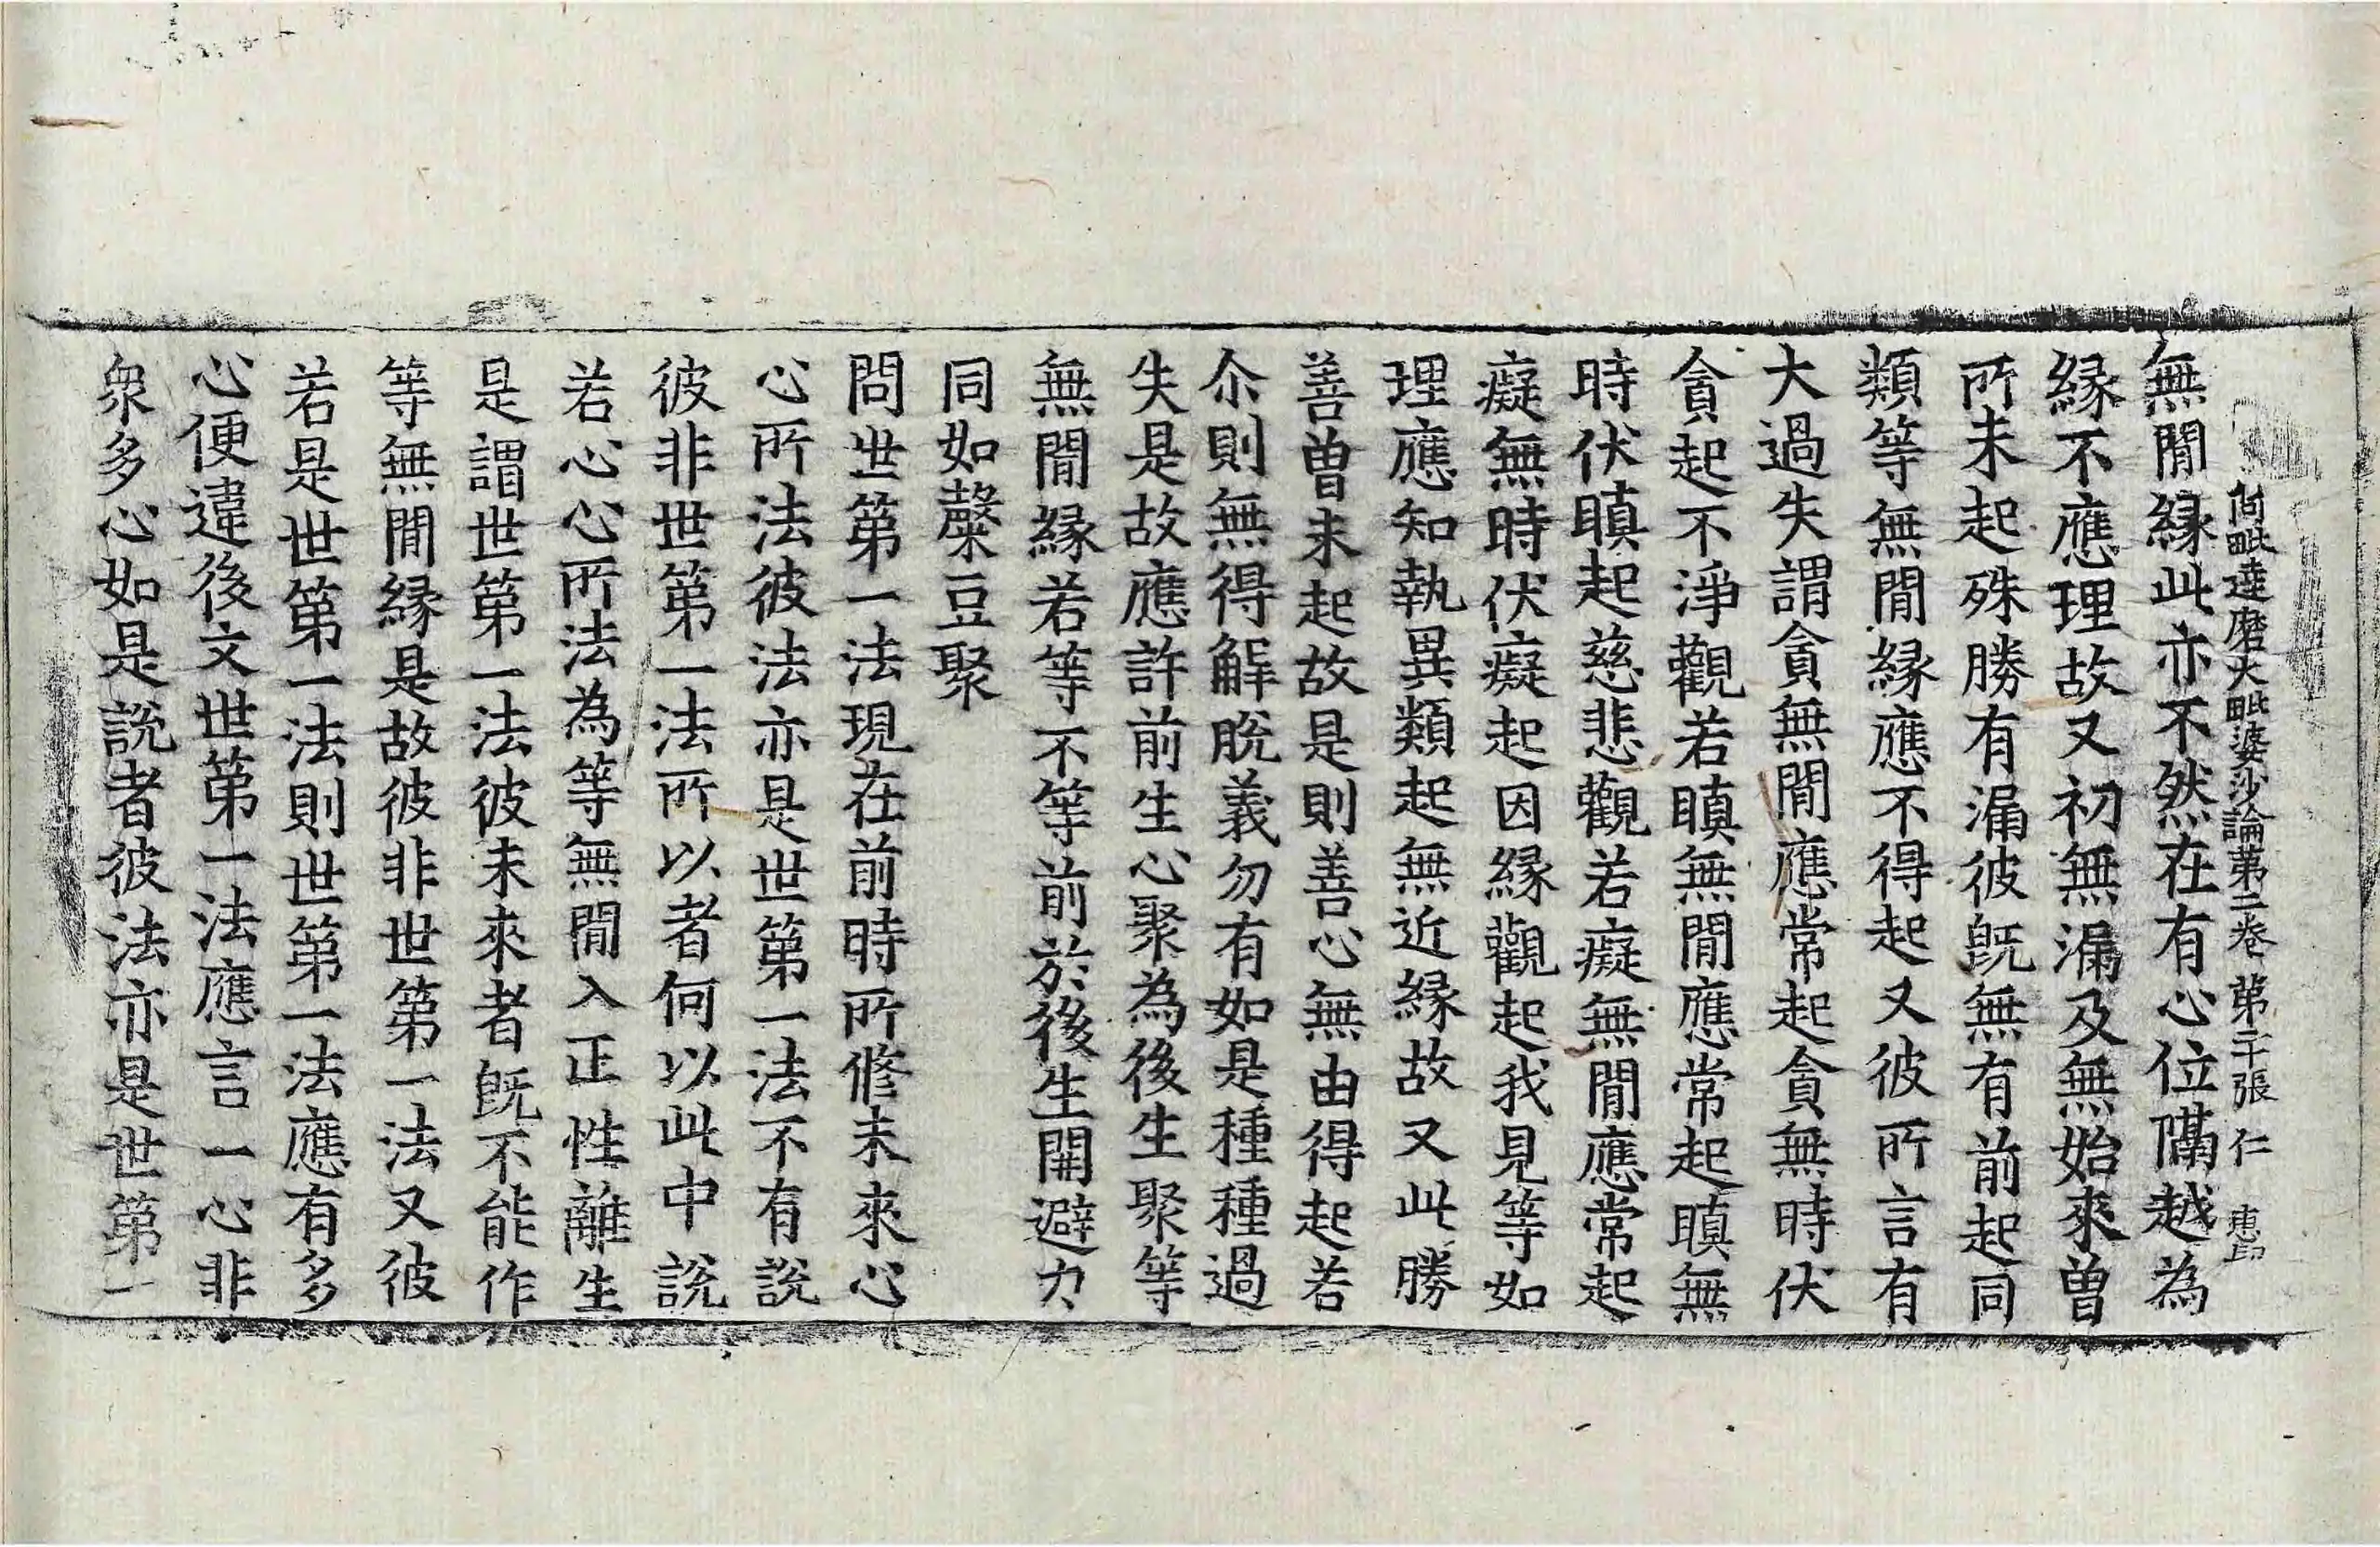 阿毗達磨大毗婆沙論第二卷 第二十張 仁 惠印
無閒緣此亦不然在有心位隔越為
緣不應理故又初無漏及無始來曾
所未起殊勝有漏彼旣無有前起同
類等無閒緣應不得起又彼所言有
大過失謂貪無閒應常起貪無時伏
貪起不淨觀若瞋無閒應常起瞋無
時伏瞋起慈悲觀若癡無閒應常起
癡無時伏癡起因緣觀起我見等如
理應知執異類起無近緣故又此勝
善曾未起故是則善心無由得起若
尒則無得解脫義勿有如是種種過
失是故應許前生心聚為後生聚等
無閒緣若等不等前於後生開避力
同如糵豆聚
問世第一法現在前時所修未來心
心所法彼法亦是世第一法不有說
彼非世第一法所以者何以此中說
若心心所法為等無閒入正性離生
是謂世第一法彼未來者旣不能作
等無閒緣是故彼非世第一法又彼
若是世第一法則世第一法應有多
心便違後文世第一法應言一心非
衆多心如是說者彼法亦是世第一